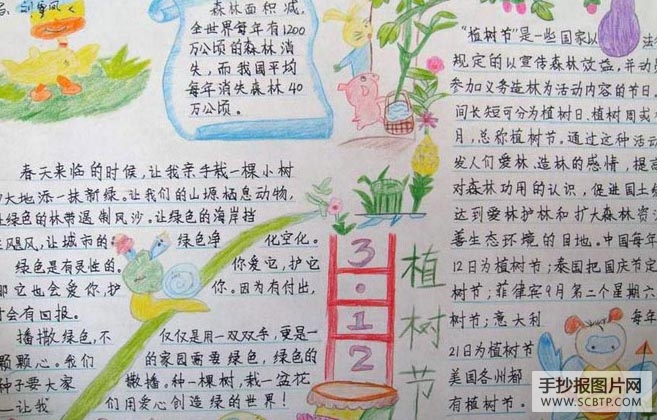 森林面积减,
全世界每年有1200
万公顷的森林消
失,而我国平均
每年消失森林40
万公顷。
春天来临的时候,让我亲手栽一棵小树
大地添一抹新绿。让我们的山塬栖息动物,
绿色的林带遏制风沙。让绿色的海岸挡
飓风,让城市的 绿色净 化空化。
绿色是有灵性的。 你爱它,护它
它也会爱你,护 你。因为有付出,
会有回报。
播撒绿色,不 仅仅是用一双双手,更是一
颗颗心。我们 的家园需要绿色,绿色的
种子要大家 撒播。种一棵树,栽一盆花
让我 们用爱心创造绿的世界!
3·12
植树节
“植树节”是一些国家以 法
规定的以宣传森林效益,并动
参加义务造林为活动内容的节日.
间长短可分为植树日、植树周或
月,总称植树节,通过这种活动
发人们爱林、造林的感情,提高
对森林功用的认识,促进国土
达到爱林护林和扩大森林资
善生态环境的目地。中国每年
12日为植树节;泰国把国庆节定
树节;菲律宾9月第二个星期六
树节;意大利 每年
21日为植树节
美国各州都
有植树节.
手抄报图片网
WWW.SCBTP.COM